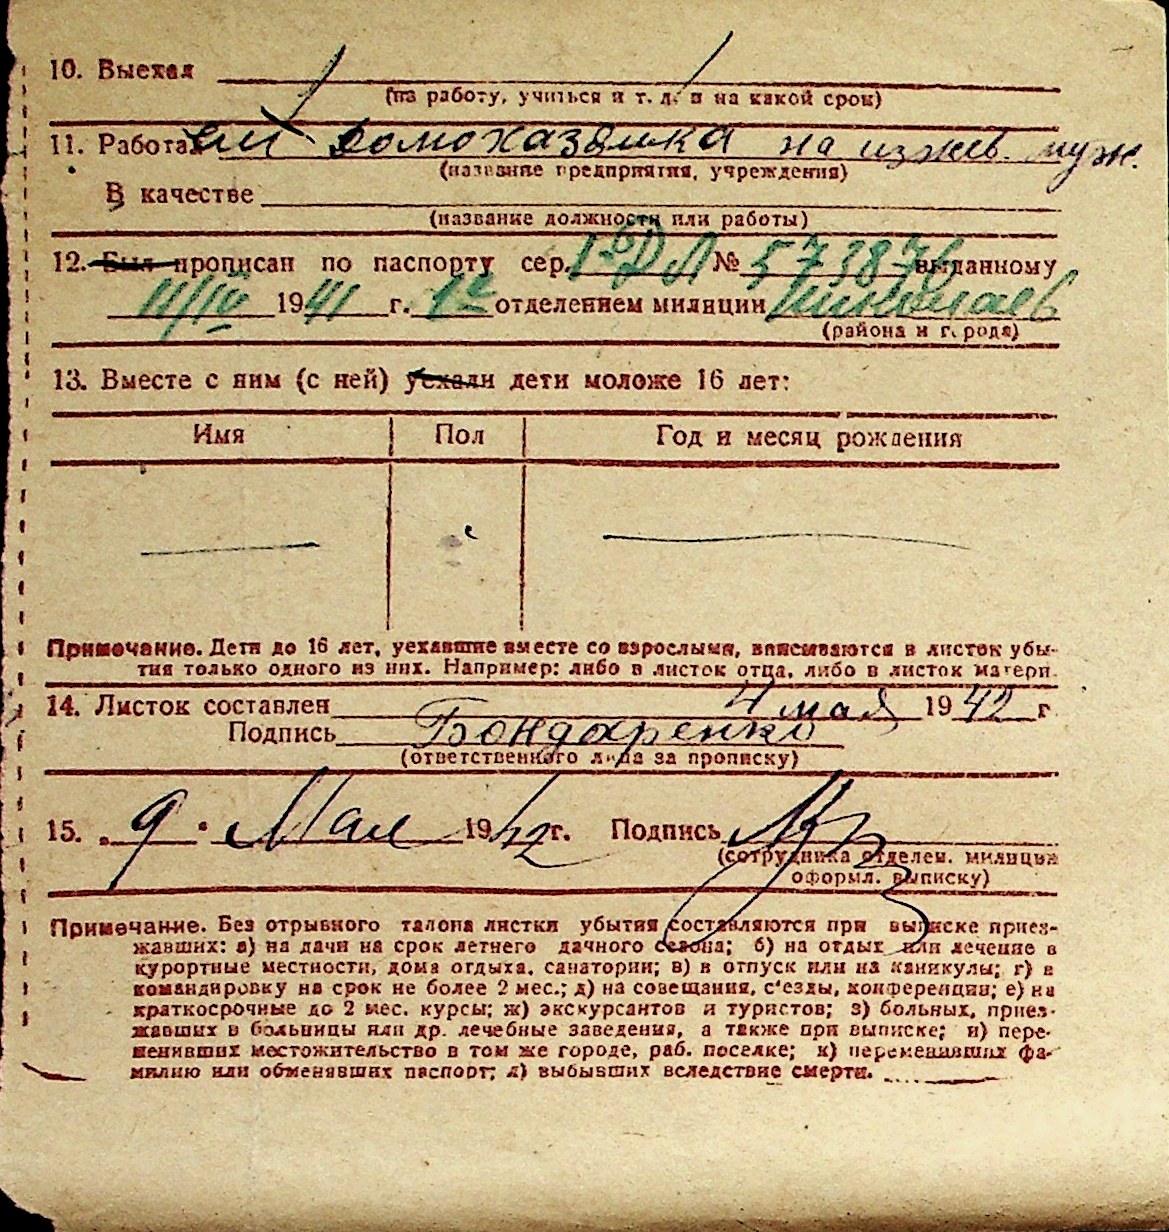 10. Выехал
(на работу, учиться и т. д. и на какой срок)
11. Работал домохазяйка на изжев. муж.
(название предприятия, учреждения)
В качестве
(название должности или работы)
12. Был прописан по паспорту сер. № 573876 выданному
11/IV 1941 г. 1е отделением милиции Николаев
(района и города)
13. Вместе с ним (с ней) уехали дети моложе 16 лет:
Имя Пол Год и месяц рождения
Примечание. Дети до 16 лет, уехавшие вместе со взрослыми, вписываются в листок убы-
тия только одного из них. Например: либо в листок отца, либо в листок матери.
14. Листок составлен 4 мая 1942 г
Подпись Бондаренко
(ответственного лица за прописку)
15. „9" Мая 1942 г. Подпись
(сотрудника отделен. милиции
оформл. выписку)
Примечание. Без отрывного талона листки убытия составляются при выписке приез-
жавших: а) на дачи на срок летнего дачного сезона; б) на отдых или лечение в
курортные местности, дома отдыха, санатории; в) в отпуск или на каникулы; г) в
командировку на срок не более 2 мес.; д) на совещания, с'езды, конференции; е) на
краткосрочные до 2 мес. курсы; ж) экскурсантов и туристов; з) больных, приез-
жавших в больницы или др. лечебные заведения, а также при выписке; и) пере-
менивших местожительство в том же городе, раб. поселке; к) переменивших фа-
милию или обменявших паспорт; л) выбывших вследствие смерти.